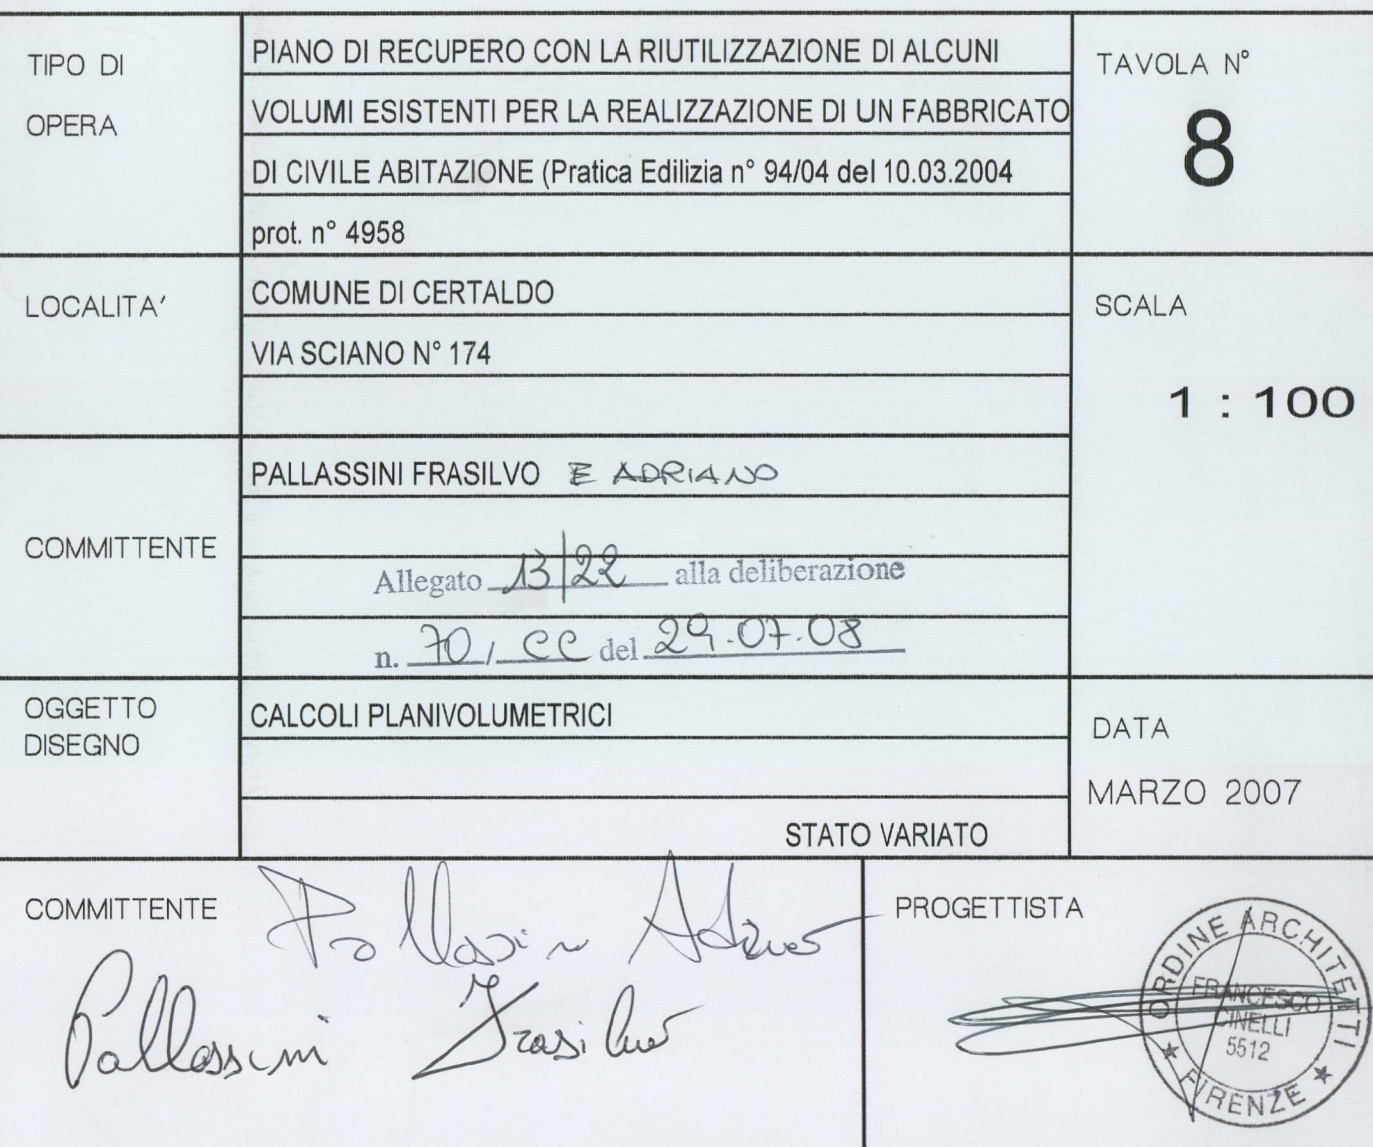 TIPO DI
OPERA
PIANO DI RECUPERO CON LA RIUTILIZZAZIONE DI ALCUNI
VOLUMI ESISTENTI PER LA REALIZZAZIONE DI UN FABBRICATO
DI CIVILE ABITAZIONE (Pratica Edilizia n° 94/04 del 10.03.2004
prot. n° 4958
TAVOLA N°
8
LOCALITA'
COMUNE DI CERTALDO
VIA SCIANO N° 174
SCALA
1 : 100
COMMITTENTE
PALLASSINI FRASILVO E ADRIANO
Allegato 13/22 alla deliberazione
n. 70, CC del 29.07.08
OGGETTO
DISEGNO
CALCOLI PLANIVOLUMETRICI
STATO VARIATO
DATA
MARZO 2007
COMMITTENTE
Pallassini Adriano
Pallassini Frasilvo
PROGETTISTA
ORDINE ARCHITETTI
FRANCESCO
CINELLI
5512
★ FIRENZE ★